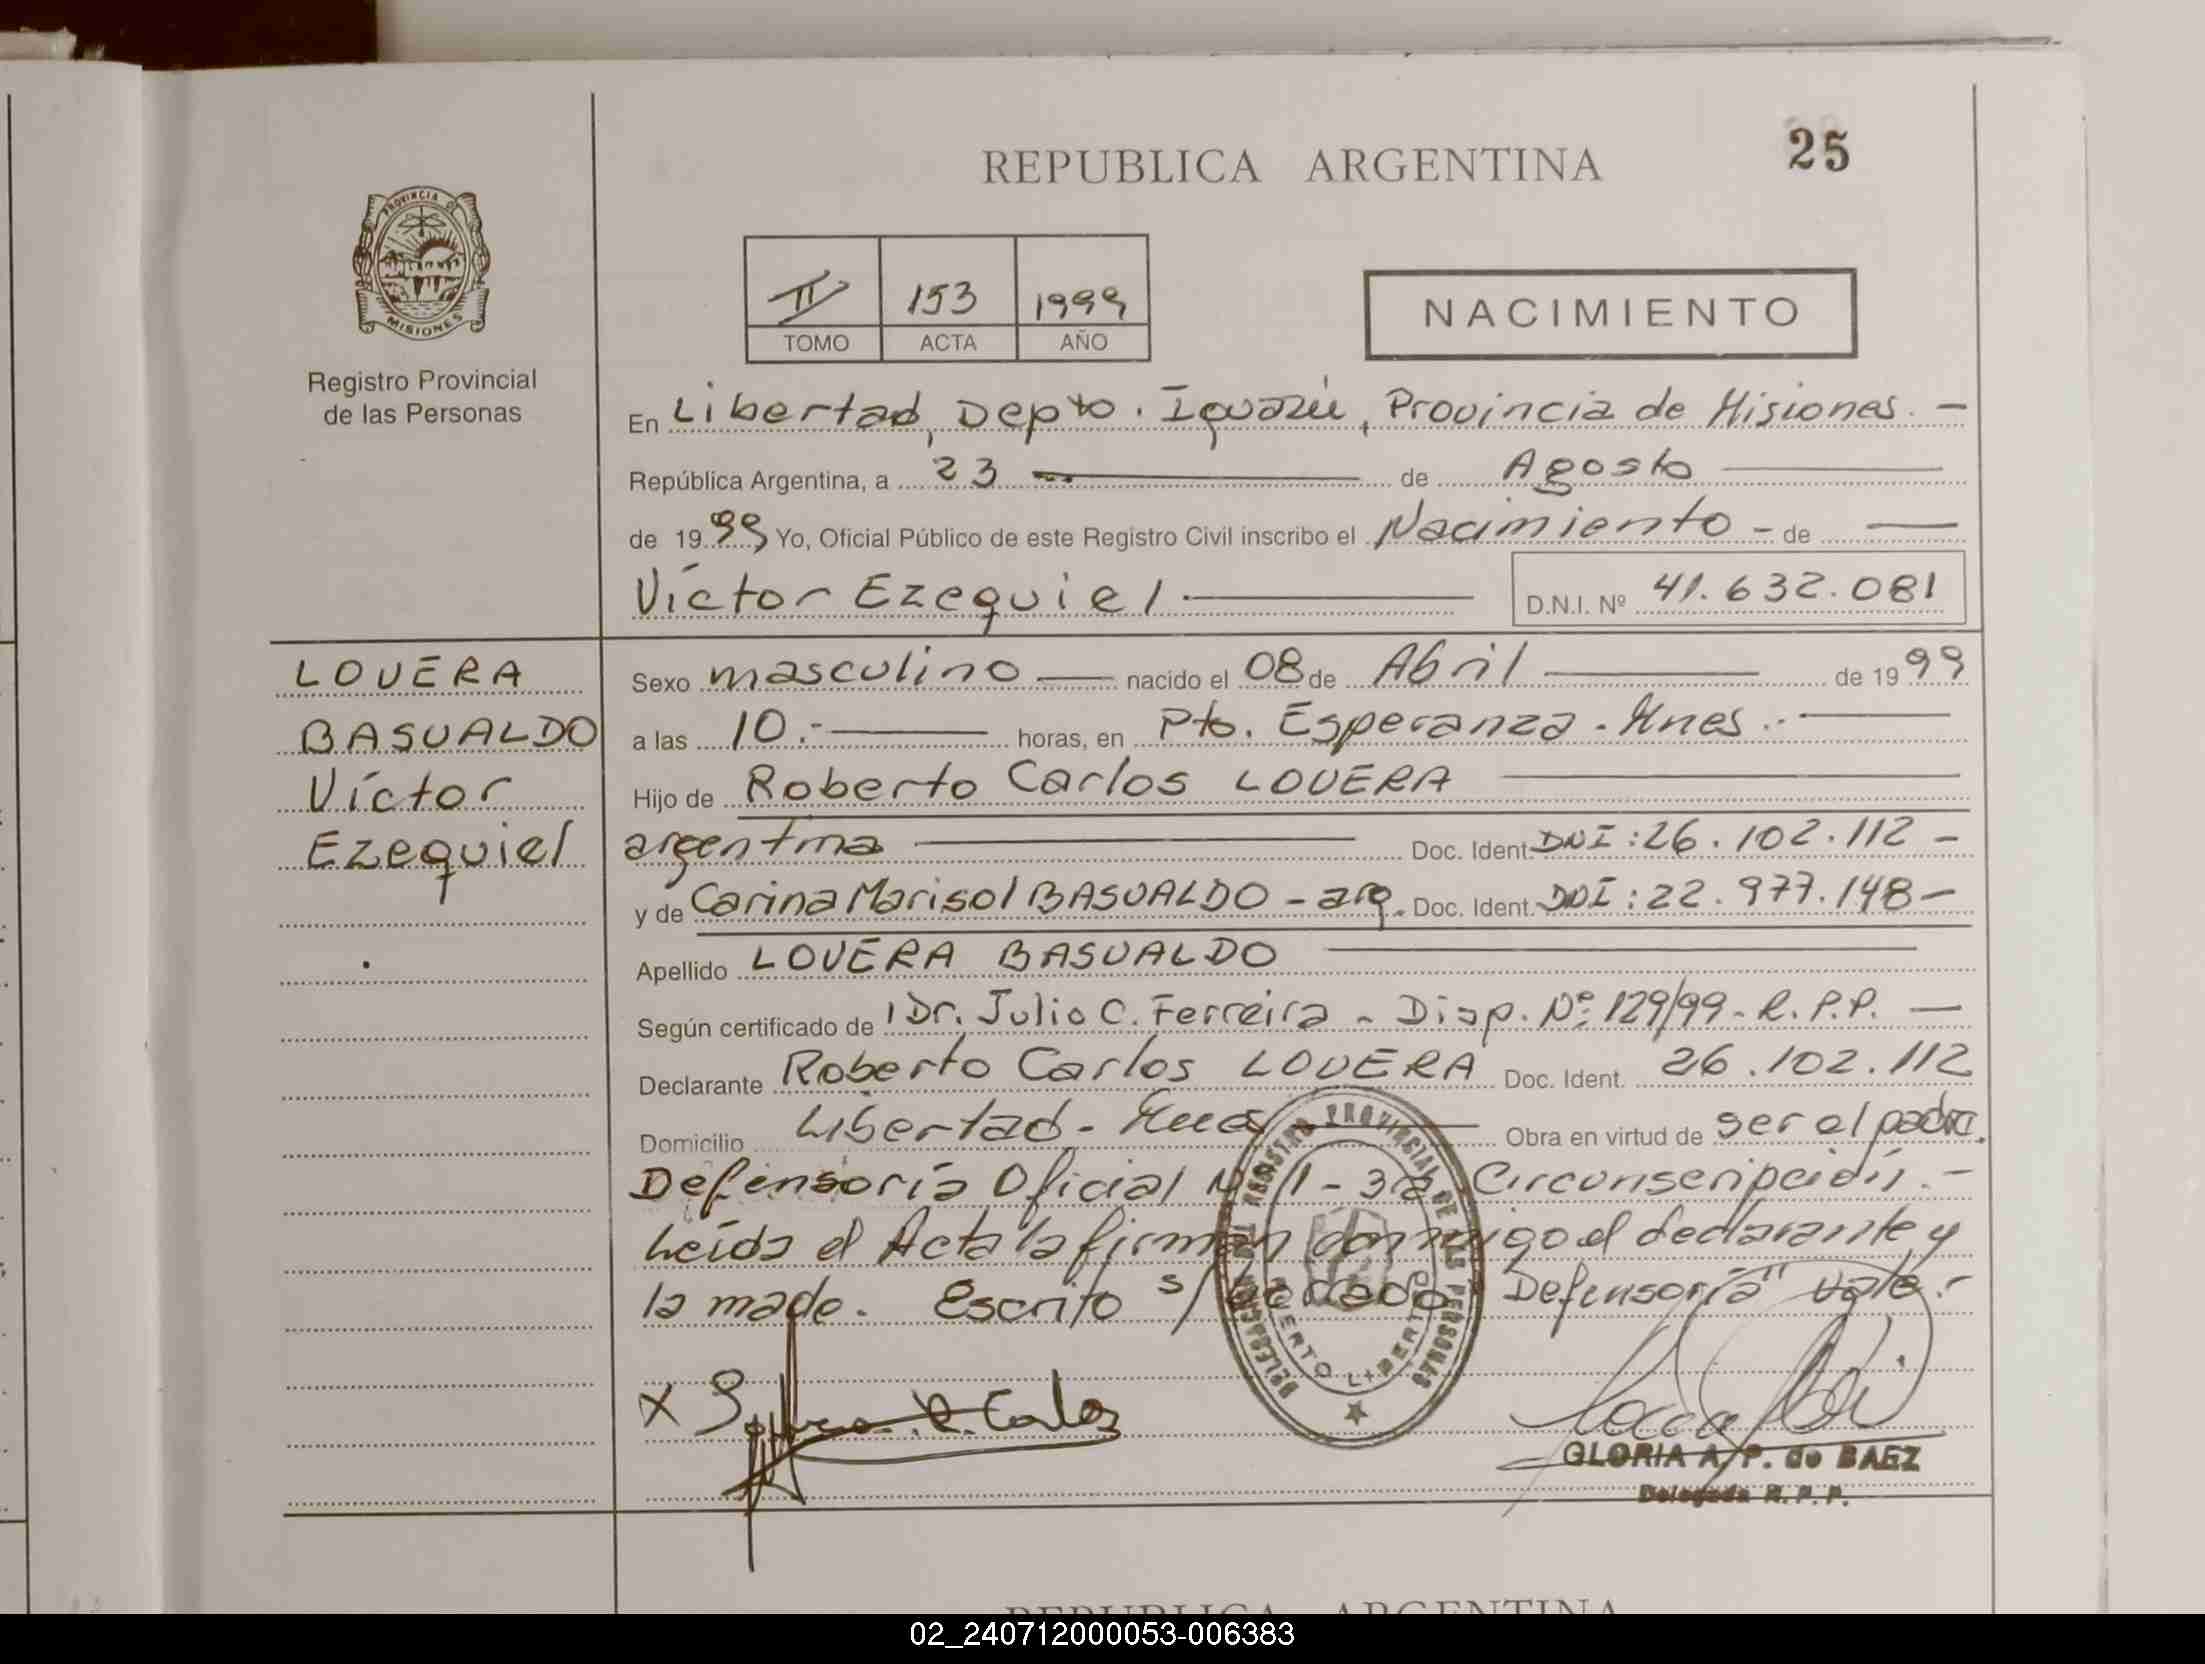 25
REPUBLICA ARGENTINA
PROVINCIA DE
MISIONES
Registro Provincial
de las Personas
II 153 1999
TOMO ACTA AÑO
NACIMIENTO
En Libertad, Depto. Iguazú, Provincia de Misiones. -
República Argentina, a 23 de Agosto
de 1999 Yo, Oficial Público de este Registro Civil inscribo el Nacimiento - de
Víctor Ezequiel D.N.I. Nº 41.632.081
LOVERA
BASUALDO
Víctor
Ezequiel
Sexo masculino nacido el 08 de Abril de 1999
a las 10.- horas, en Pto. Esperanza - Mnes.-
Hijo de Roberto Carlos LOVERA
argentina Doc. Ident. DNI: 26.102.112 -
y de Carina Marisol BASUALDO - arg. Doc. Ident. DNI: 22.977.148 -
Apellido LOVERA BASUALDO
Según certificado de Dr. Julio C. Ferreira - Disp. Nº 129/99 - R.P.P. -
Declarante Roberto Carlos LOVERA Doc. Ident. 26.102.112
Domicilio Libertad - Mnes Obra en virtud de ser el padre.
Defensoría Oficial Nº 1 - 3a Circunscripción. -
Leída el Acta la firman conmigo el declarante y
la madre. Escrito s/ borrado "Defensoría" vale.-
DELEGACION REGISTRO PROVINCIAL DE LAS PERSONAS
PUERTO LIBERTAD
X R. Carlos
GLORIA A. P. de BAEZ
Delegada R. P. P.
REPUBLICA ARGENTINA
02_240712000053-006383